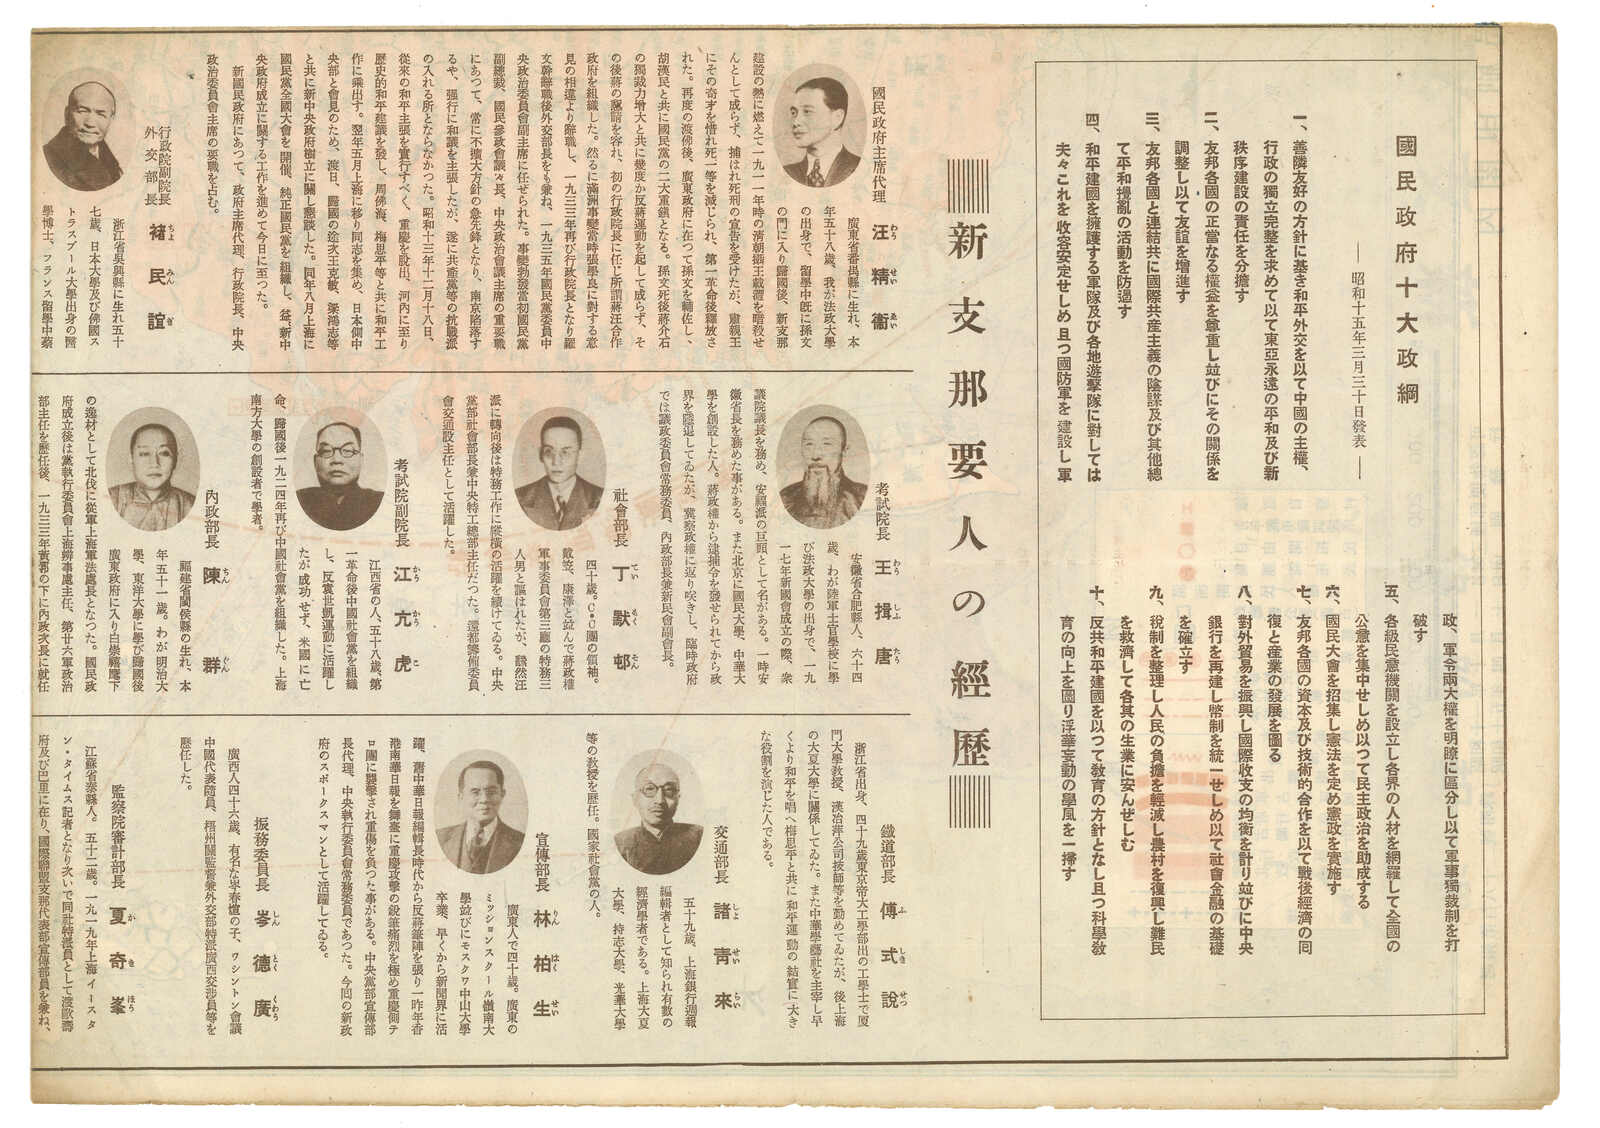 國民政府十大政綱
― 昭和十五年三月三十日發表 ―
一、善隣友好の方針に基き和平外交を以て中國の主權、
行政の獨立完整を求めて以て東亞永遠の平和及び新
秩序建設の責任を分擔す
二、友邦各國の正當なる權益を尊重し竝びにその關係を
調整し以て友誼を增進す
三、友邦各國と連結共に國際共産主義の陰謀及び其他總
て平和攪亂の活動を防遏す
四、和平建國を擁護する軍隊及び各地遊擊隊に對しては
夫々これを收容安定せしめ且つ國防軍を建設し軍
政、軍令兩大權を明瞭に區分し以て軍事獨裁制を打
破す
五、各級民意機關を設立し各界の人材を網羅して全國の
公意を集中せしめ以つて民主政治を助成する
六、國民大會を招集し憲法を定め憲政を實施す
七、友邦各國の資本及び技術的合作を以て戰後經濟の囘
復と産業の發展を圖る
八、對外貿易を振興し國際收支の均衡を計り竝びに中央
銀行を再建し幣制を統一せしめ以て社會金融の基礎
を確立す
九、稅制を整理し人民の負擔を輕減し農村を復興し難民
を救濟して各其の生業に安んぜしむ
十、反共和平建國を以つて敎育の方針となし且つ科學敎
育の向上を圖り浮華妄動の學風を一掃す
新支那要人の經歷
國民政府主席代理 汪精衞
廣東省番禺縣に生れ、本
年五十八歲、我が法政大學
の出身で、留學中旣に孫文
の門に入り歸國後、新支那
建設の熱に燃えて一九一一年時の淸朝攝王載灃を暗殺せ
んとして成らず、捕はれ死刑の宣告を受けたが、肅親王
にその奇才を惜れ死一等を減じられ、第一革命後釋放さ
れた。再度の渡佛後、廣東政府に在つて孫文を輔佐し、
胡漢民と共に國民黨の二大重鎭となる。孫文死後蔣介石
の獨裁力增大と共に幾度か反蔣運動を起して成らず、そ
の後蔣の懇請を容れ、初の行政院長に任じ所謂蔣汪合作
政府を組織した。然るに滿洲事變當時張學良に對する意
見の相違より辭職し、一九三三年再び行政院長となり羅
文幹辭職後外交部長をも兼ね、一九三五年國民黨委員中
央政治委員會副主席に任ぜられた。事變勃發當初國民黨
副總裁、國民參政會議々長、中央政治會議主席の重要職
にあつて、常に不擴大方針の急先鋒となり、南京陷落す
るや、强行に和議を主張したが、遂に共產黨等の抗戰派
の入れる所とならなかつた。昭和十三年十二月十八日、
從來の和平主張を實行すべく、重慶を脫出、河內に至り
歷史的和平建議を發し、周佛海、梅思平等と共に和平工
作に乘出す。翌年五月上海に移り同志を集め、日本側中
央部と會見のため、渡日、歸國の途次王克敏、梁鴻志等
と共に新中央政府樹立に關し懇談した。同年八月上海に
國民黨全國大會を開催、純正國民黨を組織し、益々新中
央政府成立に關する工作を進めて今日に至つた。
新國民政府にあつて、政府主席代理、行政院長、中央
政治委員會主席の要職を占む。
行政院副院長
外交部長 褚民誼
浙江省吳興縣に生れ五十
七歲、日本大學及び佛國ス
トラスブール大學出身の醫
學博士、フランス留學中蔡
考試院長 王揖唐
安徽省合肥縣人、六十四
歲、わが陸軍士官學校に學
び法政大學の出身で、一九
一七年新國會成立の際、衆
議院議長を務め、安福派の巨頭として名がある。一時安
徽省長を務めた事がある。また北京に國民大學、中華大
學を創設した人。蔣政權から逮捕令を發せられてから政
界を隱退してゐたが、冀察政權に返り咲きし、臨時政府
では議政委員會常務委員、內政部長兼新民會副會長。
社會部長 丁默邨
四十歲。C・C團の領袖。
戴笠、康澤と並んで蔣政權
軍事委員會第三廳の特務三
人男と謳はれたが、飜然汪
派に轉向後は特務工作に縱橫の活躍を續けてゐる。中央
黨部社會部長兼中央特工總部主任だつた。還都籌備委員
會交通股主任として活躍した。
考試院副院長 江亢虎
江西省の人、五十八歲、第
一革命後中國社會黨を組織
し、反袁世凱運動に活躍し
たが成功せず、米國に亡
命、歸國後一九二四年再び中國社會黨を組織した。上海
南方大學の創設者で學者。
內政部長 陳群
福建省閩侯縣の生れ、本
年五十一歲。わが明治大
學、東洋大學に學び歸國後
廣東政府に入り白崇禧麾下
の逸材として北伐に從軍上海軍法處長となつた。國民政
府成立後は黨執行委員會上海辨事處主任、第廿六軍政治
部主任を歷任後、一九三三年黃郛の下に內政次長に就任
鐵道部長 傅式說
浙江省出身、四十九歲東京帝大工學部出の工學士で厦
門大學敎授、漢冶萍公司技師等を勤めてゐたが、後上海
の大夏大學に關係してゐた。また中華學藝社を主宰し早
くより和平を唱へ梅思平と共に和平運動の結實に大き
な役割を演じた人である。
交通部長 諸靑來
五十九歲、上海銀行週報
編輯者として知られ有數の
經濟學者である。上海大夏
大學、持志大學、光華大學
等の敎授を歷任。國家社會黨の人。
宣傳部長 林柏生
廣東人で四十歲。廣東の
ミッションスクール嶺南大
學竝びにモスクワ中山大學
卒業、早くから新聞界に活
躍、舊中華日報編輯長時代から反蔣筆陣を張り一昨年香
港南華日報を舞臺に重慶攻擊の銳筆痛烈を極め重慶側テ
ロ團に襲擊され重傷を負つた事がある。中央黨部宣傳部
長代理、中央執行委員會常務委員であつた。今囘の新政
府のスポークスマンとして活躍してゐる。
振務委員長 岑德廣
廣西人四十六歲、有名な岑春煊の子、ワシントン會議
中國代表隨員、梧州關監督兼外交部特派廣西交涉員等を
歷任した。
監察院審計部長 夏奇峯
江蘇省泰縣人。五十二歲。一九一九年上海イースタ
ン・タイムス記者となり次いで同社特派員として渡歐壽
府及び巴里に在り、國際聯盟支那代表部宣傳部員を兼ね、